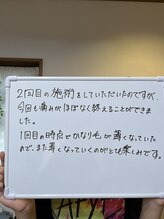 2回目の施術をしていただいたのですが、
今回も痛みがほぼなく終えることができ
ました。
1回目の時点でかなり毛が薄くなっていた
ので、また薄くなっていくのがとても楽しみです。